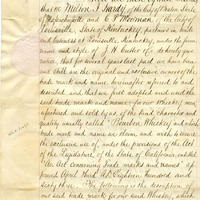 that we Milton J. Hardy of the City of Boston State
of Massachusetts and C. F. Moorman of the City of
Louisville, State of Kentucky, partners in trade
and business at Louisville, Kentucky, under the firm
name and style of J. H. Cutter
that for several years last past, we have been
and still are the original and exclusive owners of the
trade mark and name hereinafter referred to and
described, and that we first adopted and used the
said trade mark and name for our Whiskey man-
ufactured and sold by us of the kind character and
quality usually called "Bourbon Whiskey and which
trade mark and name we claim and wish to secure
the exclusive use of, under the provisions of the Act
of the Legislature of the State of California, entitled
"An Act concerning trade marks and names" ap-
proved April third A.D. Eighteen hundred and
sixty three. The following is the description of
our said trade mark for said Whiskey, which